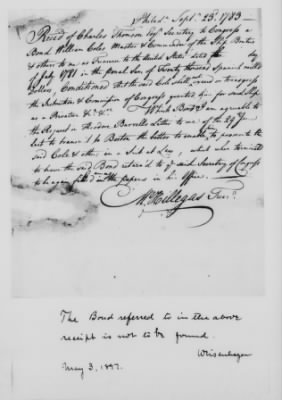 Philada. Septr. 25th. 1783
Received of Charles Thomson Esqr. Secretary to Congress a
Bond William Coles Master & Commander of the Ship Boston
& others to me as Treasurer to the United States, dated the day
of July 1781 in the Penal Sum of Twenty thousand Spanish milled
Dollars, Conditioned that the said Cole shall not or transgress
the Instruction & Commission of Congress granted him for said Ship
as a Privateer &c. &c. Which Bond I am agreeable to
the Request of Theodore Barrell Letter to me of the 29 June
last to transmit to Boston the better to enable to prosecute the
said Cole & others in a Suit at Law, who
to have the said Bond return'd to me and Secretary of Congress
to be again filed with the papers in his Office.
M. Hillegas Treasr.
The Bond referred to in the above
receipt is not to be found.
May 3, 1897.